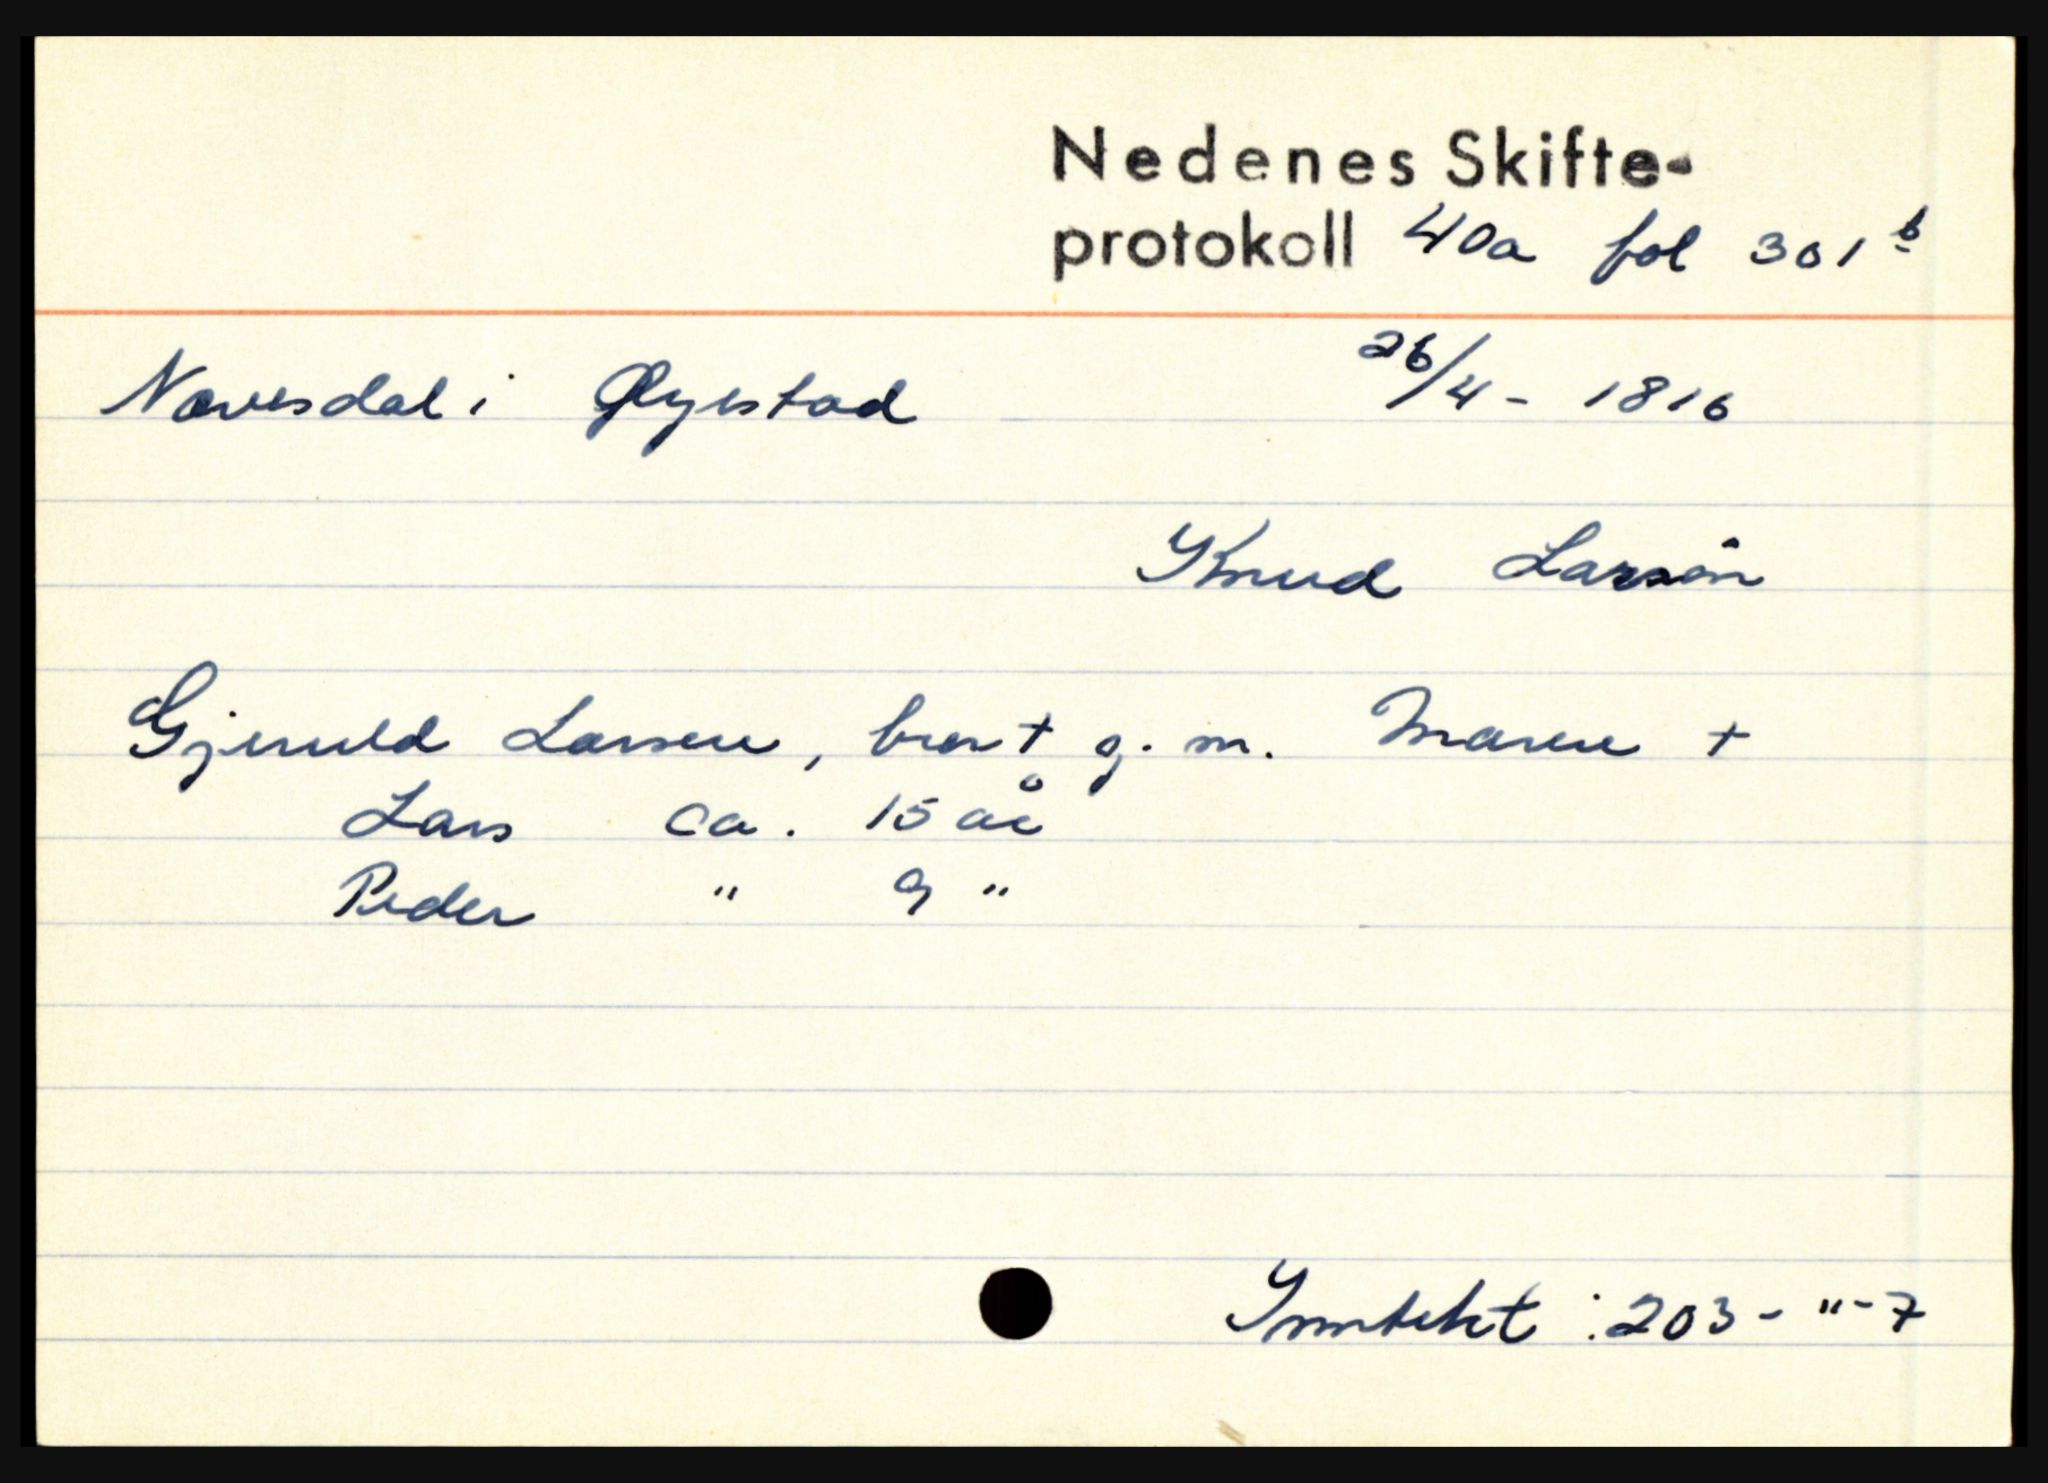 Nedenes Skifte-
protokoll 40a fol 301b
Nævesdal i Øyestad 26/4 - 1816
Knud Larsøn
Gjeruld Larsen, bror + g. m. Maren +
Lars ca. 15 år
Peder " 9 "
Inntekt : 203 - " - 7